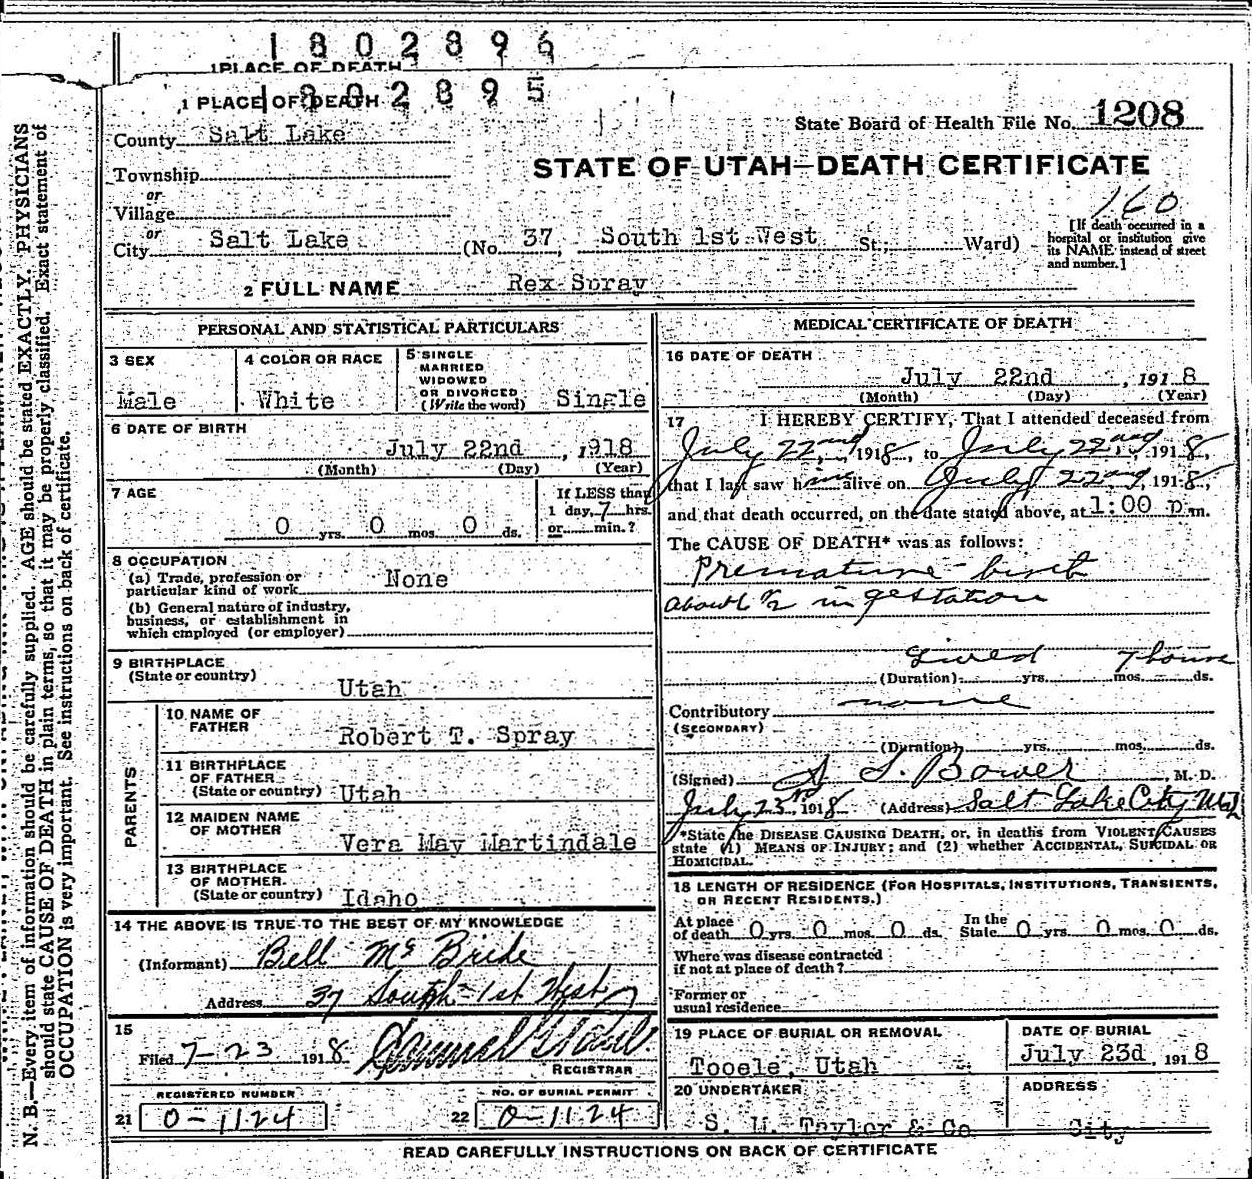 1802896
1 PLACE OF DEATH
1802895
1 PLACE OF DEATH
County Salt Lake
State Board of Health File No. 1208
STATE OF UTAH—DEATH CERTIFICATE
Township
or
Village
160
or
City Salt Lake (No. 37, South 1st West St.; Ward)
[If death occurred in a hospital or institution give its NAME instead of street and number.]
2 FULL NAME Rex Spray
PERSONAL AND STATISTICAL PARTICULARS
3 SEX
Male
4 COLOR OR RACE
White
5 SINGLE
MARRIED
WIDOWED
OR DIVORCED
(Write the word) Single
6 DATE OF BIRTH
July 22nd, 1918
(Month) (Day) (Year)
7 AGE
0 yrs. 0 mos. 0 ds.
If LESS than
1 day, 7 hrs.
or min.?
8 OCCUPATION
(a) Trade, profession or
particular kind of work None
(b) General nature of industry,
business, or establishment in
which employed (or employer)
9 BIRTHPLACE
(State or country)
Utah
PARENTS
10 NAME OF
FATHER
Robert T. Spray
11 BIRTHPLACE
OF FATHER
(State or country) Utah
12 MAIDEN NAME
OF MOTHER
Vera May Martindale
13 BIRTHPLACE
OF MOTHER
(State or country) Idaho
14 THE ABOVE IS TRUE TO THE BEST OF MY KNOWLEDGE
(Informant) Bell McBride
Address 37 South 1st West
15
Filed 7-23 1918
REGISTRAR
REGISTERED NUMBER
21 0-1124
NO. OF BURIAL PERMIT
22 0-1124
MEDICAL CERTIFICATE OF DEATH
16 DATE OF DEATH
July 22nd, 1918
(Month) (Day) (Year)
17 I HEREBY CERTIFY, That I attended deceased from
July 22nd, 1918, to July 22nd, 1918,
that I last saw him alive on July 22nd, 1918,
and that death occurred, on the date stated above, at 1:00 p.m.
The CAUSE OF DEATH* was as follows:
Premature birth
about 6 1/2 in gestation
Lived 7 hours
(Duration) yrs. mos. ds.
Contributory none
(SECONDARY)
(Duration) yrs. mos. ds.
(Signed) S L. Bower, M. D.
July 23 1918 (Address) Salt Lake City
*State the DISEASE CAUSING DEATH, or, in deaths from VIOLENT CAUSES
state (1) MEANS OF INJURY; and (2) whether ACCIDENTAL, SUICIDAL OR
HOMICIDAL.
18 LENGTH OF RESIDENCE (FOR HOSPITALS, INSTITUTIONS, TRANSIENTS,
OR RECENT RESIDENTS.)
At place
of death 0 yrs. 0 mos. 0 ds. In the State 0 yrs. 0 mos. 0 ds.
Where was disease contracted
if not at place of death?
Former or
usual residence
19 PLACE OF BURIAL OR REMOVAL
Tooele, Utah
DATE OF BURIAL
July 23d, 1918
20 UNDERTAKER
S. M. Taylor & Co
ADDRESS
City
READ CAREFULLY INSTRUCTIONS ON BACK OF CERTIFICATE
N. B.—Every item of information should be carefully supplied. AGE should be stated EXACTLY. PHYSICIANS
should state CAUSE OF DEATH in plain terms, so that it may be properly classified. Exact statement of
OCCUPATION is very important. See instructions on back of certificate.